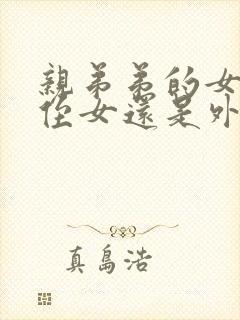 親弟弟的女
侄女還是外
真島浩